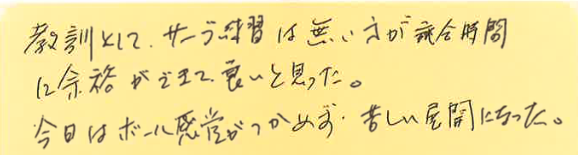 教訓として、サーブ練習は無い方が試合時間
に余裕ができて良いと思った。
今日はボール感覚がつかめず、苦しい展開になった。